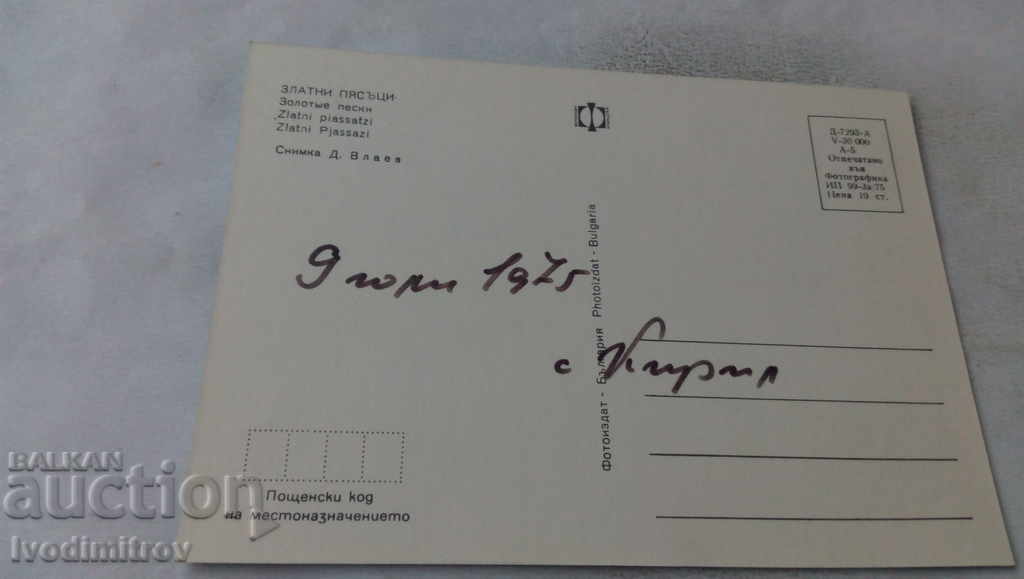 ЗЛАТНИ ПЯСЪЦИ
Золотые пески
Zlatni piassatzi
Zlatni Pjassazi
Снимка Д. Влаев
Д-7293-А
V-30 000
А-5
Отпечатано
във
Фотографика
ИП 99-За 75
Цена 19 ст.
9 юори 1975
с Кирил
Фотоиздат - България Photoizdat - Bulgaria
Пощенски код
на местоназначението
BALKAN
auction
Ivodimitrov